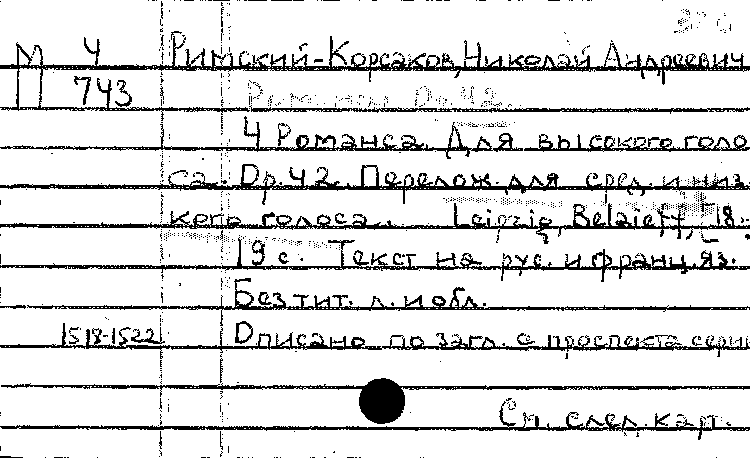 М 4 Римский-Корсаков, Николай Андреевич
П 743
Романсы Op.42.
4 Романса. Для высокого голо
са. Op.42. Перелож. для сред. и низ
кого голоса. Leipzig, Belaieff, [18..
19 с. Текст на рус. и франц. яз.
Без тит. л. и обл.
1518-1522 Описано по загл. с проспекта серии
См. след. карт.